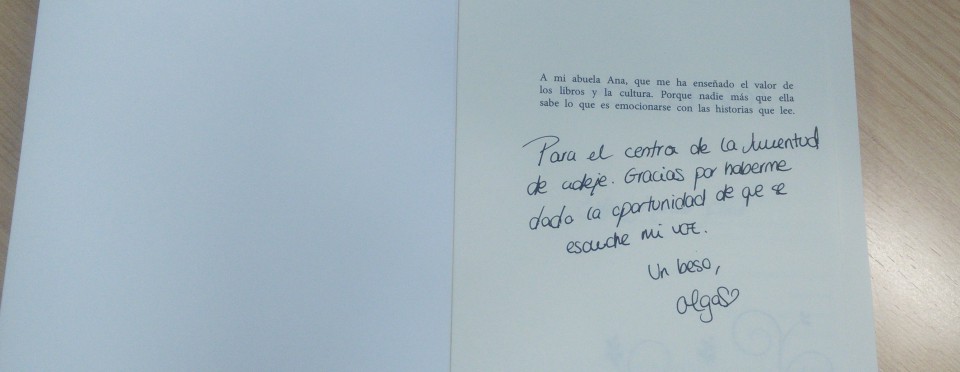 A mi abuela Ana, que me ha enseñado el valor de
los libros y la cultura. Porque nadie más que ella
sabe lo que es emocionarse con las historias que lee.
Para el centro de la Juventud
de adeje. Gracias por haberme
dado la oportunidad de que se
escuche mi voz.
Un beso,
Olga